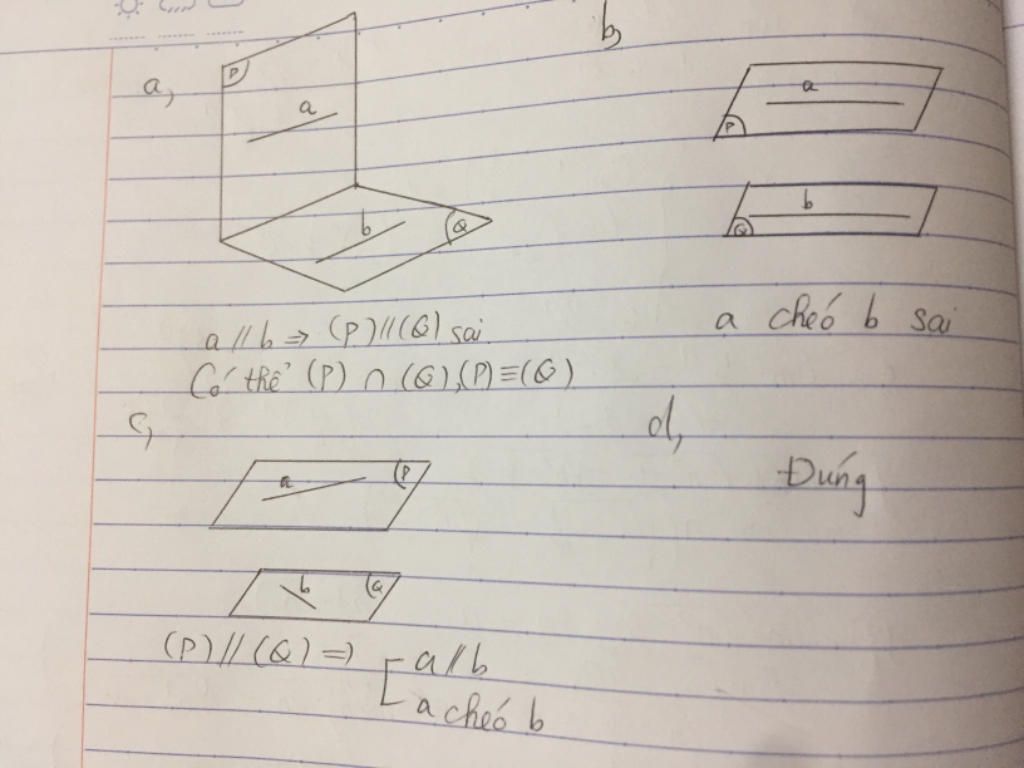 a,
P
a
b
Q
a // b => (P) // (Q) sai
Có thể (P) ∩ (Q), (P) ≡ (Q)
b,
a
P
b
Q
a chéo b sai
c,
a
(P
b
(Q
(P) // (Q) => [ a // b
a chéo b
d,
Đúng